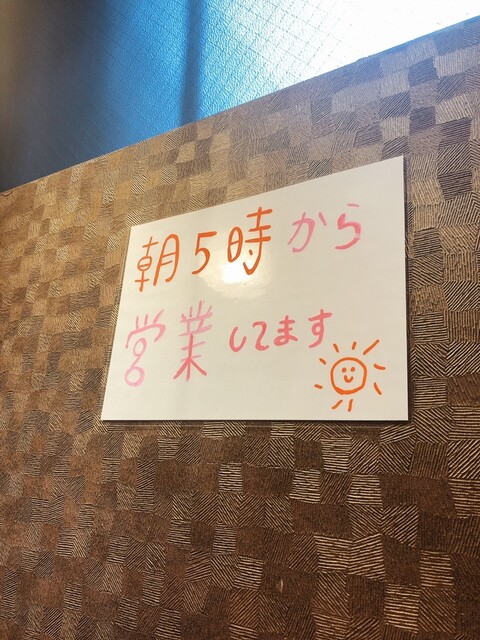 朝5時から
営業してます